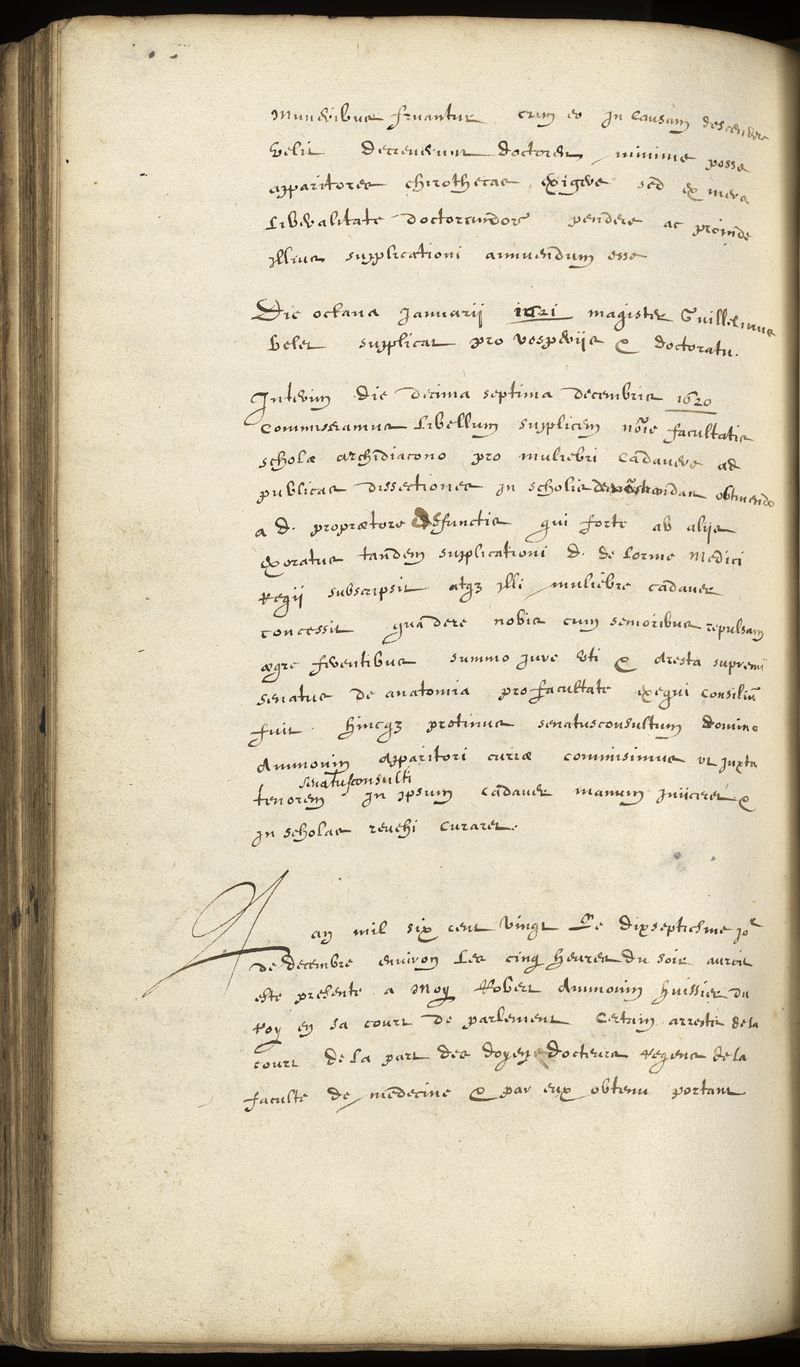 muneribus fruantur cum eo in causam descendere
velit decreverunt doctores minime posse
apparitores chirothecas exigere sed ex mera
liberalitate doctorandorum pendere ac proinde
illius supplicationi annuendum esse
Die octava Januarii 1621 magister Guillelmus
Velet supplicat pro vesperiis & doctoratu.
Interim die decima septima decembris 1620
Commiseramus libellum supplicem noīe facultatis
scholæ archidiacono pro muliebri cadavere ad
publicas dissectiones in scholis demonstrandas obtinendo
a d. proprætore defunctis qui forte ab aliis
exoratus tandem supplicationi d. de lorme medici
Regii subscripsit atqz illi muliebre cadaver
concessit quā dere nobis cum senioribus repulsam
ægre ferentibus summo jure uti & aresta supremi
senatus de anatomia pro facultate exequi consiliū
fuit. hincqz protinus senatusconsultum domino
Ammonin apparitori curiæ commisimus ut juxta
tenorem senatusconsulti in ipsum cadaver manum iniiceret &
in scholas revehi curaret.
an mil six cent vingt Le dixseptiesme jor
de decembre environ les cinq heures du soir auroit
esté presenté a Moy Robert Ammonin huissier du
Roy en sa court de parlement certain arrest de la
court de la part des doyen docteurs Regens de la
faculté de medecine & par eux obtenu portant